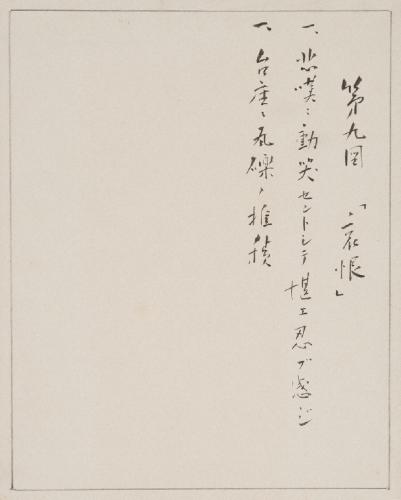 第九図 「哀悵」
一、悲嘆ニ動哭セントシテ堪エ忍ブ感ジ
一、台座ニ瓦礫ノ堆積